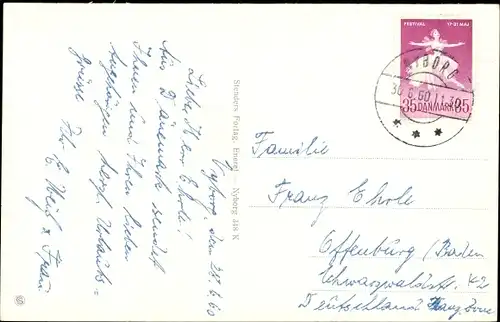 Nyborg, den 28.6.60
Liebe Herr Ehrle!
Aus Dänemark sendet
Ihnen und Ihren lieben
Angehörigen herzl. Urlaubs=
grüsse
Ihr
u. Frau
Stenders Forlag. Eneret – Nyborg 348 K
FESTIVAL 17-31 MAJ
35 DANMARK 35
NYBORG
30.6.60.
Familie
Franz Ehrle
Offenburg/Baden
Schwarzwaldstr. 42
Deutschland franz. Zone